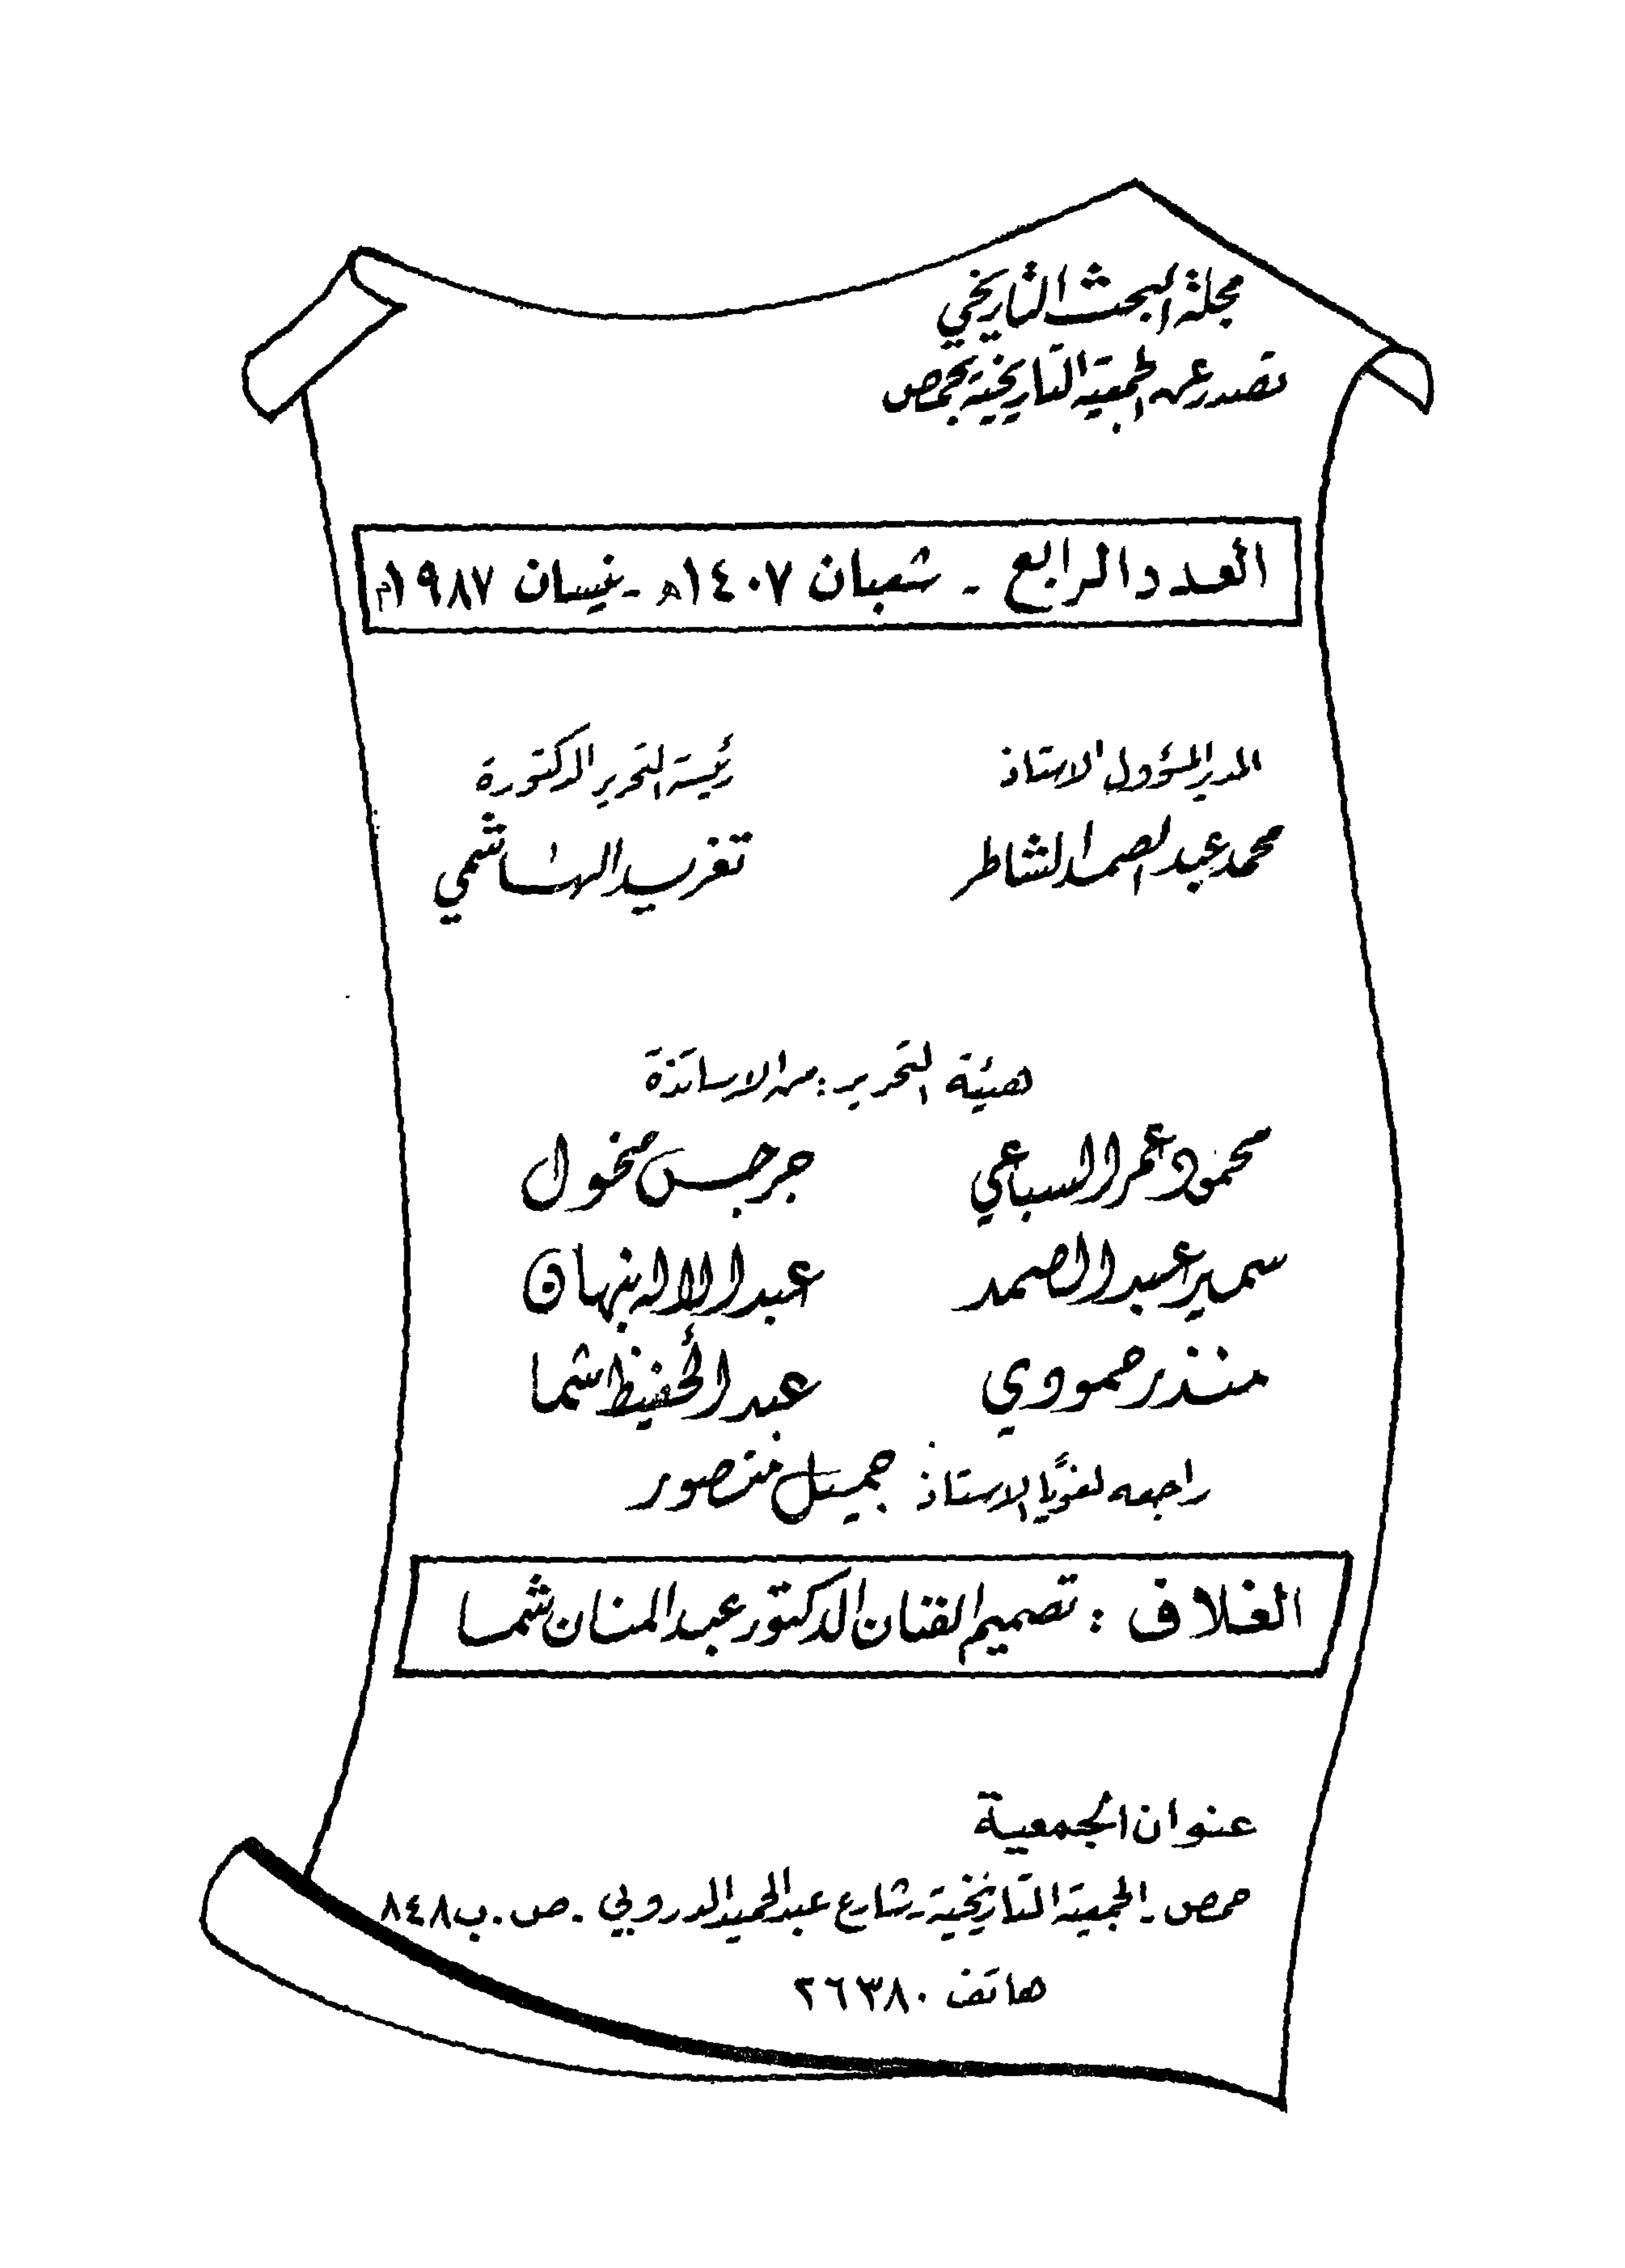 مجلة البحث التاريخي
تصدر عن الجمعية التاريخية بحمص
العدد الرابع - شعبان ١٤٠٧هـ - نيسان ١٩٨٧م
المدير المسؤول الاستاذ
محمد عبد الصمد الشاطر
رئيسة التحرير الدكتورة
تغريد الهاشمي
هيئة التحرير : من الاساتذة
محمود عمر السباعي
جرجس مخول
سمير عبد الصمد
عبد الاله نبهان
منذر حمودي
عبد الحفيظ شما
راجعه لغويًا الاستاذ جميل منصور
الغلاف : تصميم الفنان الدكتور عبد المنان شما
عنوان الجمعية
حمص - الجمعية التاريخية - شارع عبد الحميد الدروبي - ص . ب ٨٤٨
هاتف ٢٦٣٨٠